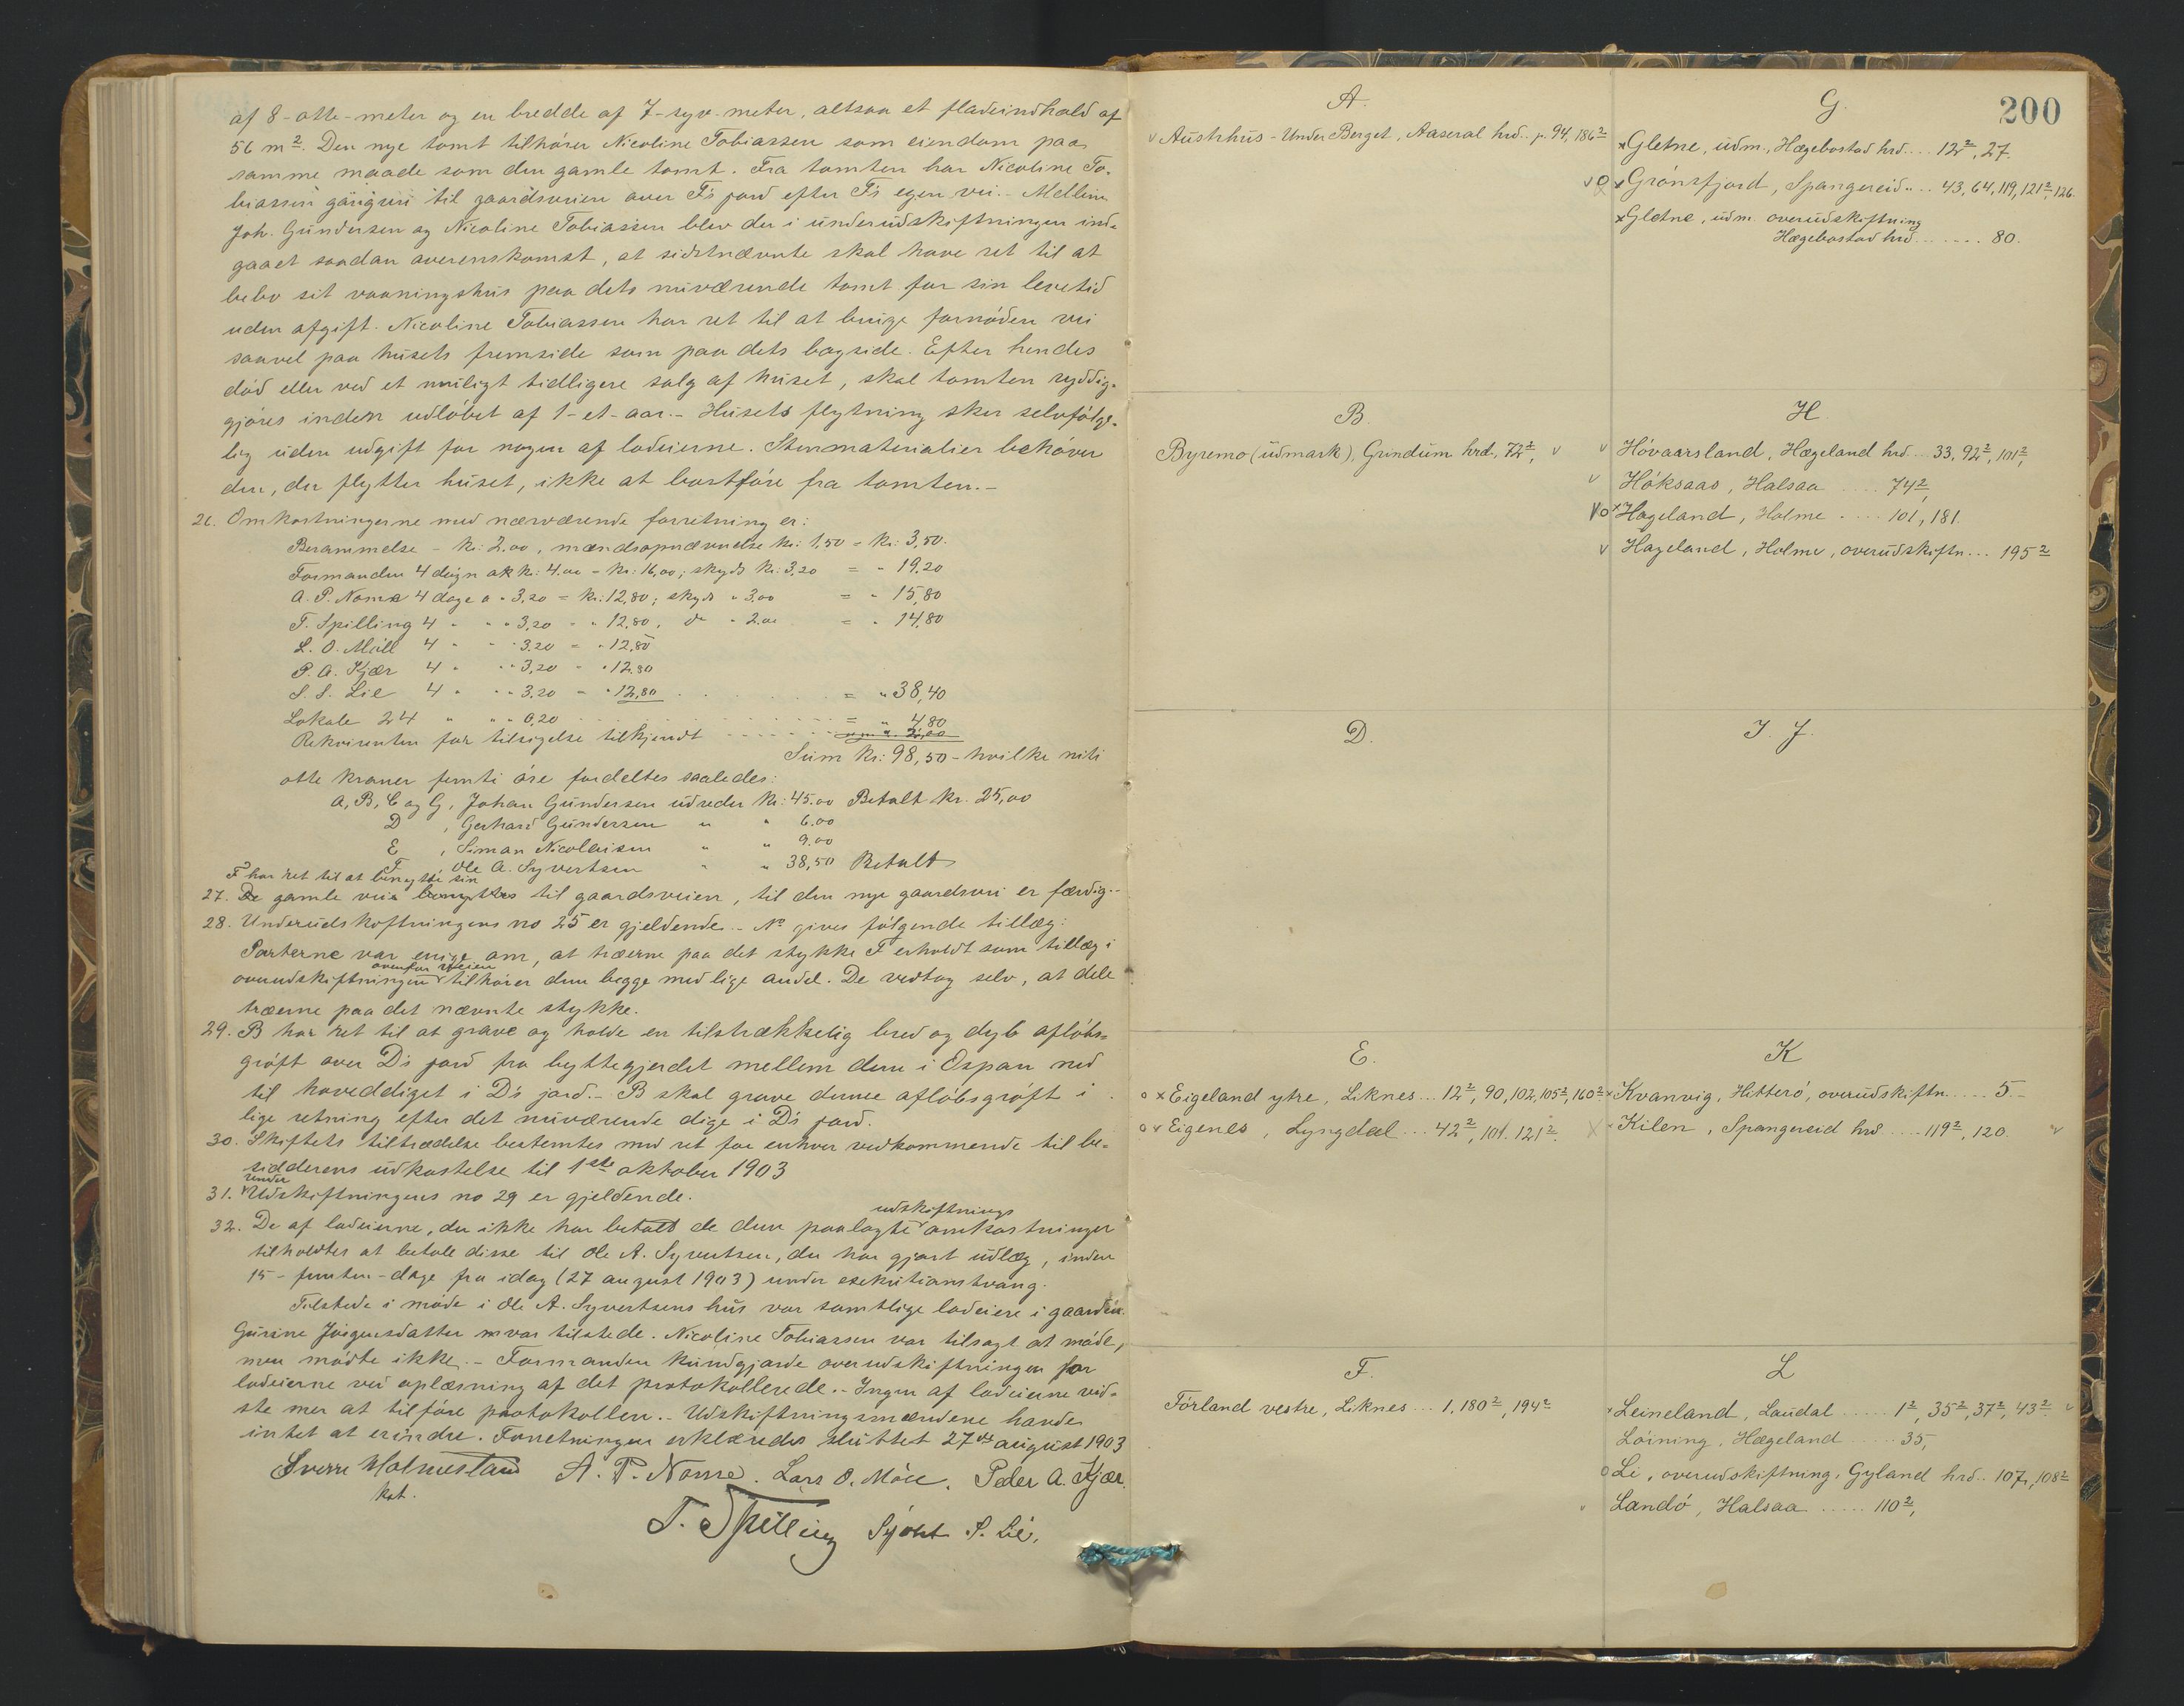 af 8-otte-meter og en bredde af 7-syv-meter, altsaa et fladeindhold af
56 m². Den nye tomt tilhører Nicoline Tobiassen som eiendom paa
samme maade som den gamle tomt. Fra tomten har Nicoline To-
biassen gangvei til gaardsveien over F's jord efter F's egen vei. - Mellem
Joh. Gundersen og Nicoline Tobiassen blev der i underudskiftningen ind-
gaaet saadan overenskomst, at sidstnævnte skal have ret til at
bebo sit vaaningshus paa dets nuværende tomt for sin levetid
uden afgift. Nicoline Tobiassen har ret til at bruge fornøden vei
saavel paa husets fremside som paa dets bagside. Efter hendes
død eller ved et muligt tidligere salg af huset, skal tomten ryddig-
gjøres inden udløbet af 1-et-aar. - Husets flytning sker selvfølge-
lig uden udgift for nogen af lodeierne. Stenmaterialier behøver
den, der flytter huset, ikke at bortføre fra tomten. -
26. Omkostningerne med nærværende forretning er:
Berammelse - kr: 2.00, mændsopnævnelse kr: 1,50 = kr: 3,50.
Formanden 4 døgn a kr: 4.00 = kr: 16,00; skyds kr: 3,20 = " 19.20
A. P. Nome 4 dage a " 3,20 = kr: 12,80; skyds " 3.00 = " 15,80
T. Spilling 4 " " " 3,20 = " 12,80, do " 2.00 = " 14,80
L. O. Møll 4 " " " 3.20 = " 12,80
P. A. Kjær 4 " " " 3,20 = " 12.80
S. S. Lie 4 " " " 3,20 = " 12,80 = " 38,40
Lokale 24 " " " 0,20 = " 4,80
Rekvirenten for tilsigelse tilkjendt " 2,00
Sum kr: 98,50 - hvilke niti
otte kroner femti øre fordeltes saaledes:
A, B, C og G, Johan Gundersen udreder kr: 45.00 Betalt kr. 25,00
D, Gerhard Gundersen " " 6.00
E, Simon Nicolaisen " " 9.00
F, Ole A. Syvertsen " " 38,50 Betalt
F har ret til at benytte sin
27. De gamle veie benyttes til gaardsveien, til den nye gaardsvei er færdig. -
28. Underudskiftningens no 25 er gjeldende. - No gives følgende tillæg:
Parterne var enige om, at træerne paa det stykke F erholdt som tillæg i
ovenfor veien
overudskiftningen tilhører dem begge med lige andel. De vedtog selv, at dele
træerne paa det nævnte stykke.
29. B har ret til at grave og holde en tilstrækkelig bred og dyb afløbs-
grøft over D's jord fra byttegjerdet mellem dem i Ospan ned
til hoveddiget i D's jord. - B skal grave denne afløbsgrøft i
lige retning efter det nuværende dige i D's jord.
30. Skiftets tiltrædelse bestemtes med ret for enhver vedkommende til be-
sidderens udkastelse til 1ste oktober 1903
under
31. Udskiftningens no 29 er gjeldende.
udskiftnings
32. De af lodeierne, der ikke har betalt de dem paalagte omkostninger
tilholdtes at betale disse til Ole A. Syvertsen, der har gjort udlæg, inden
15-femten-dage fra idag (27 august 1903) under exekutionstvang.
Tilstede i møde i Ole A. Syvertsens hus var samtlige lodeiere i gaarden.
Gurine Jørgensdatter var tilstede. Nicoline Tobiassen var tilsagt at møde,
men mødte ikke. - Formanden kundgjorde overudskiftningen for
lodeierne ved oplæsning af det protokollerede. - Ingen af lodeierne vid-
ste mer at tilføre protokollen. - Udskiftningsmændene havde
intet at erindre. Forretningen erklæredes sluttet 27de august 1903
Sverre Holmesland A. P. Nome. Lars O. Møll. Peder A. Kjær.
kst.
T. Spilling Sjøvt S. Lie.
200
A.
v Austrhus - Under Berget, Aaseral hrd. p. 94, 186²
G.
x Gletne, udm., Hægebostad hrd. ... 12², 27.
v o x Grønsfjord, Spangereid " ... 43, 64, 119, 121², 126.
x Gletne, udm. overudskiftning
Hægebostad hrd. ...... 80.
B.
Byremo (udmark), Grindum hrd., 72², v
H.
v Hóvaarsland, Hægeland hrd ... 33, 92², 101²,
v Høksaas, Halsaa ... 74²,
v o x Hageland, Holme ... 101, 181.
v Hageland, Holme, overudskiftn. ... 195²
D.
I. J.
E.
o x Eigeland ytre, Liknes ... 12², 90, 102, 105², 160²
o v Eigenes, Lyngdal ... 42², 101. 121².
K
x Kvanvig, Hitterø, overudskiftn. ... 5 -
x Kilen, Spangereid hrd ... 119², 120. v
F.
Førland vestre, Liknes ... 1, 180², 194²
L
x Leineland, Laudal ... 1², 35², 37², 43². v
Løining, Hægeland ... 35,
o Li, overudskiftning, Gyland hrd. .. 107, 108²
v Landø, Halsaa ..... 110²,